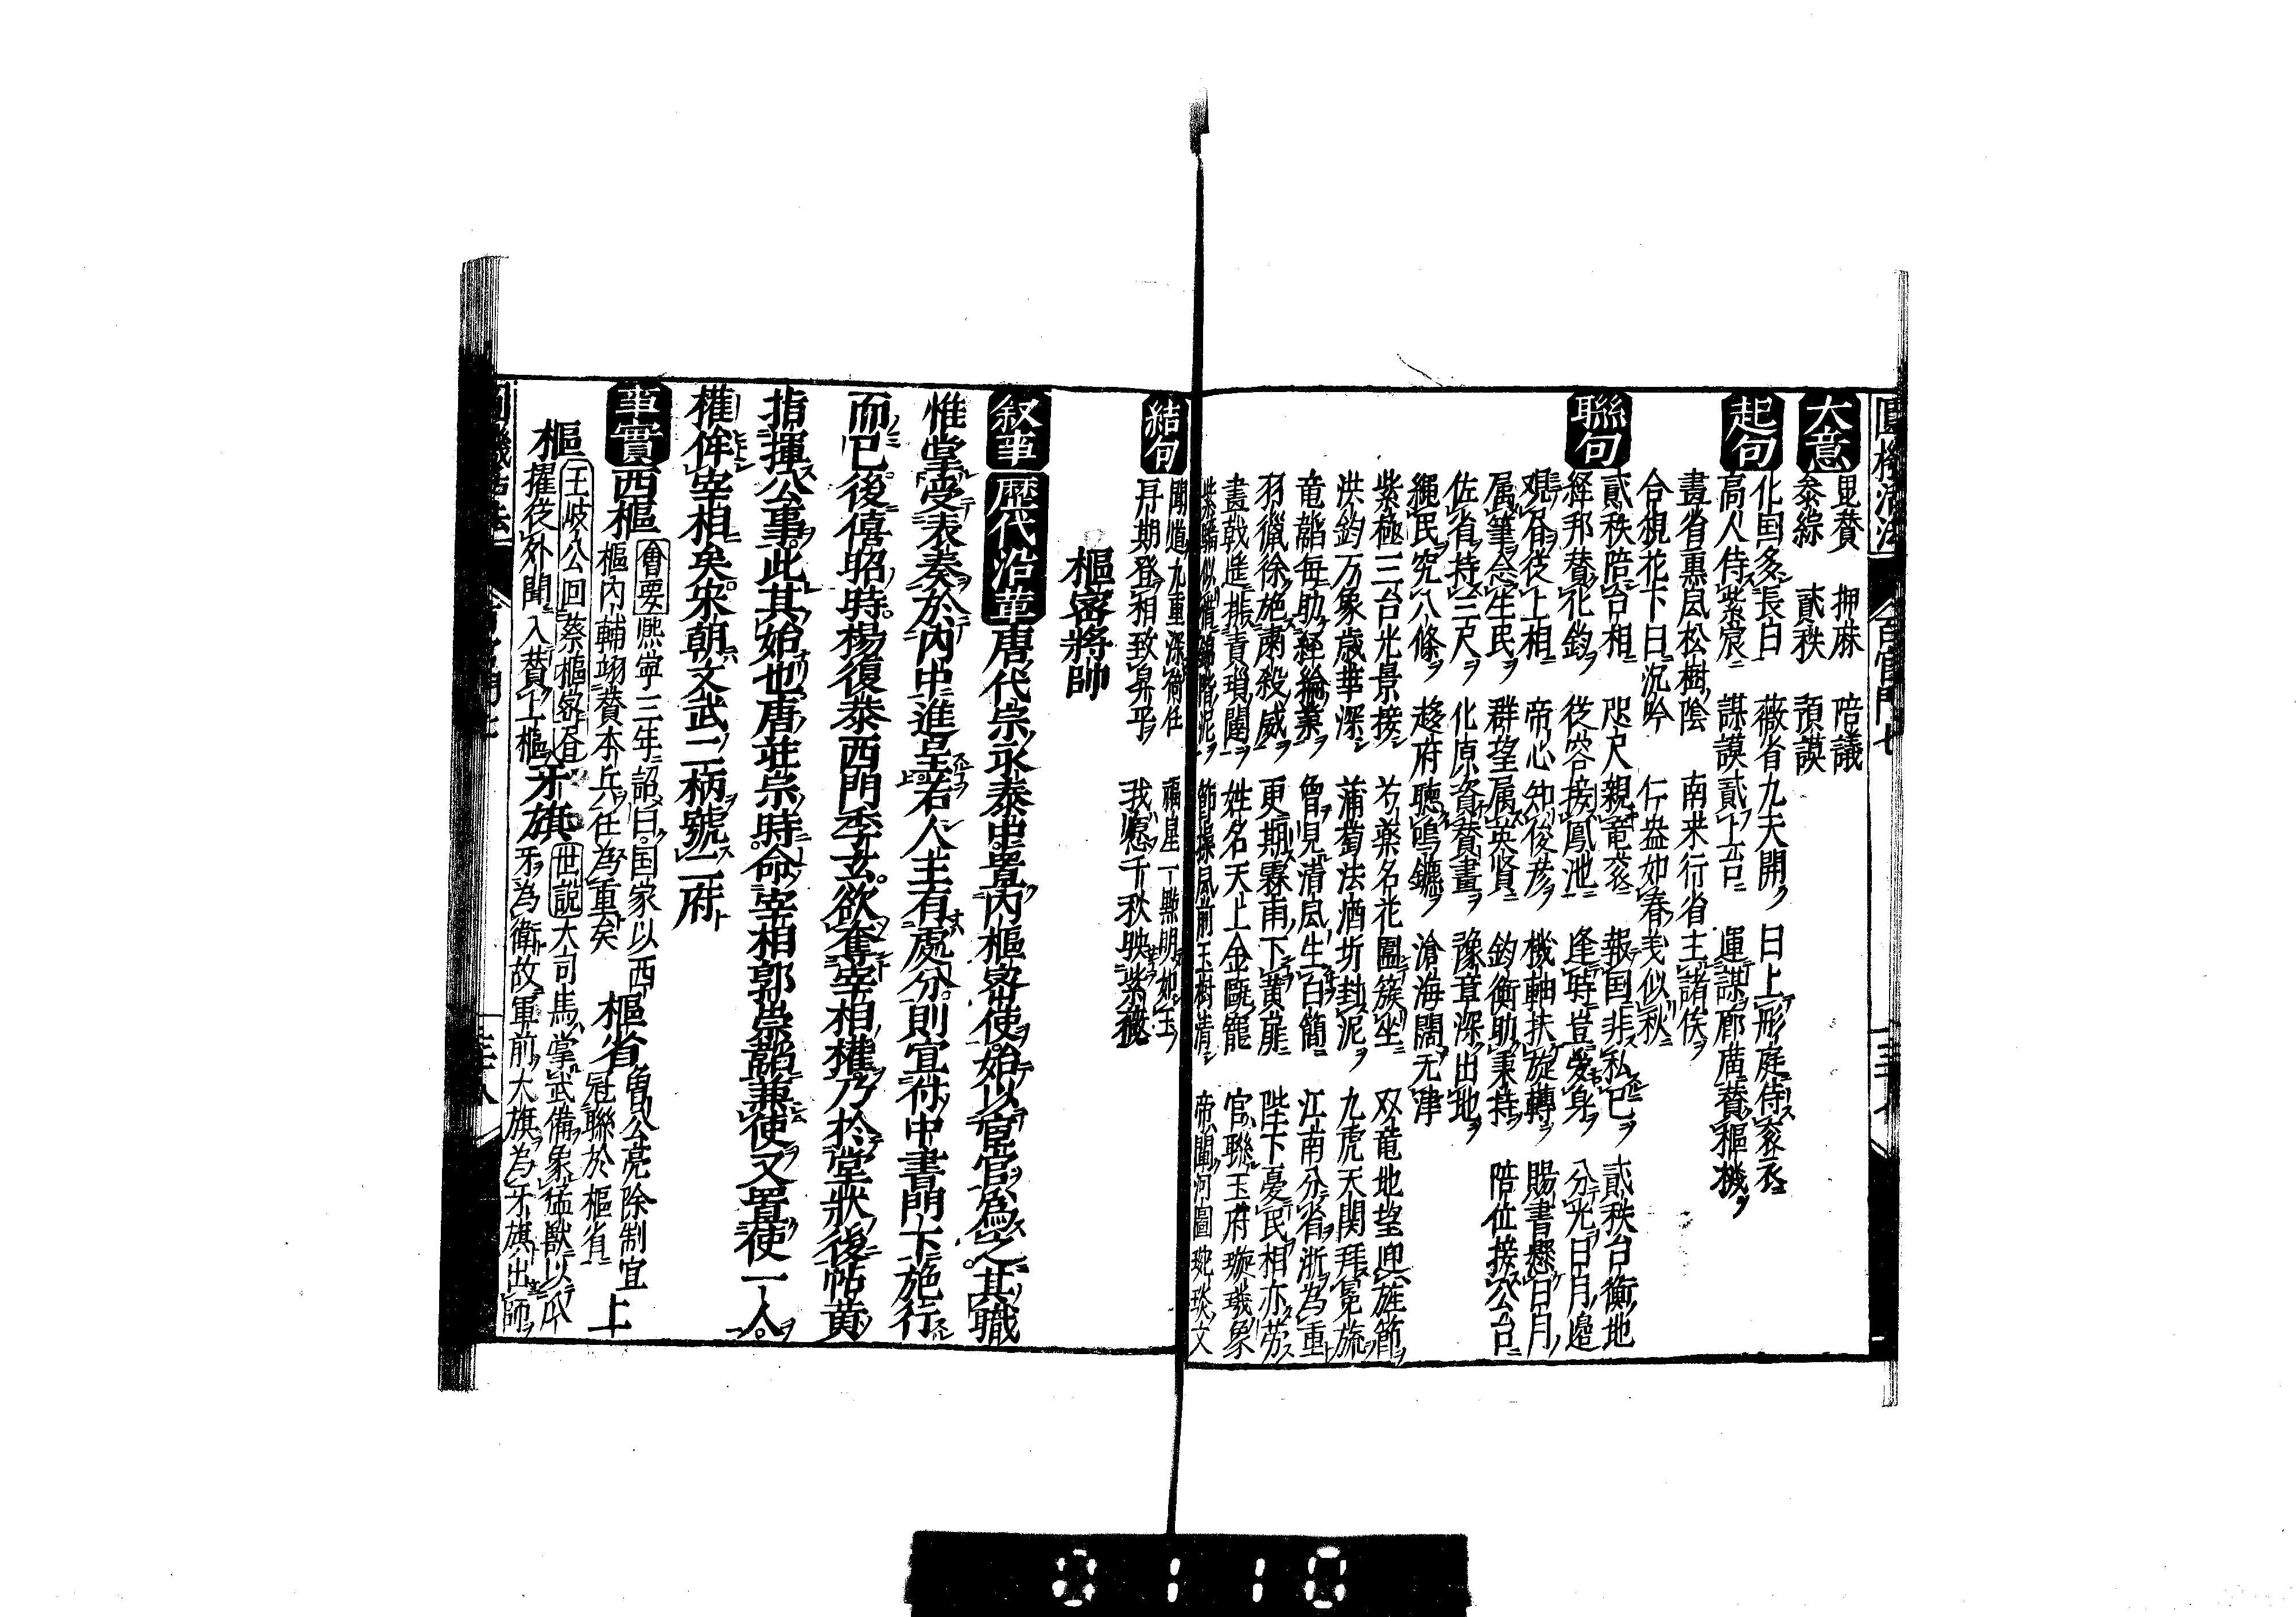 大意
毘賛　押麻　陪議
叅綜　貳秩　預謨
起句
化国多長白　薇省九天開　日上彤庭侍衮衣
高人侍紫宸　謀謨貳上台　運謀廊廣賛樞機
畫省裏風松樹陰　南来行省主諸侯
合梘花下日沉吟　仁益如春義似秋
聯句
貳秩陪台相　咫尺親竜衮　報国非私已　貳秩台衡地
經邦賛化鈞　從容接鳳池　逢時豈愛身　分光日月邉
觀谷從上相　帝心知俊彦　機軸扶旋轉　賜書懸日月
属筆念生民　群望属英賢　鈞衡助秉持　陪位接公台
佐省持三尺　化原資賛畫　豫章深出地
繩民究八條　趍府聴鳴鑣　滄海闊无津
紫極三台光景接　芍薬名花圍簇坐　双竜地望迎旌節
洪鈞万象歳華深　蒲萄法酒圻封泥　九虎天関拜冕旒
竜韜毎助経綸業　曾見清風生白簡　江南分省浙為重
羽獵徐施肅殺威　更期霖雨下黄扉　陛下憂民相亦労
畫戟遥振青瑣闥　姓名天上金甌寵　官聯玉府璇璣象
帝闡河圖琬琰文
結句
聞道九重深衛任　福星一點明如玉
丹期登相致昇平　我愿千秋映紫薇
樞密將帥
叙事 歴代沿革 唐代宗永泰中置内樞密使始以宦官爲之其職
惟掌受表奏於内中進呈若人主有處分則宣付中書門下施行
而已後僖昭時楊復恭西門季玄欲奪宰相權乃於堂狀後帖黄
指揮公事此其始也唐莊宗時命宰相郭崇韜兼使又置使一人
權侔宰相矣宋朝文武二柄號二府
事實 西樞 會要 熈寧三年詔曰国家以西
樞内輔翊賛本兵任為重矣 樞省 曾公亮除制宜
冠聯於樞省 上
樞 王岐公回蔡樞宻启
擢從外閫入賛上樞 牙旗 世説 大司馬掌武備象猛獣以爪
牙為衛故軍前大旗為牙旗出師